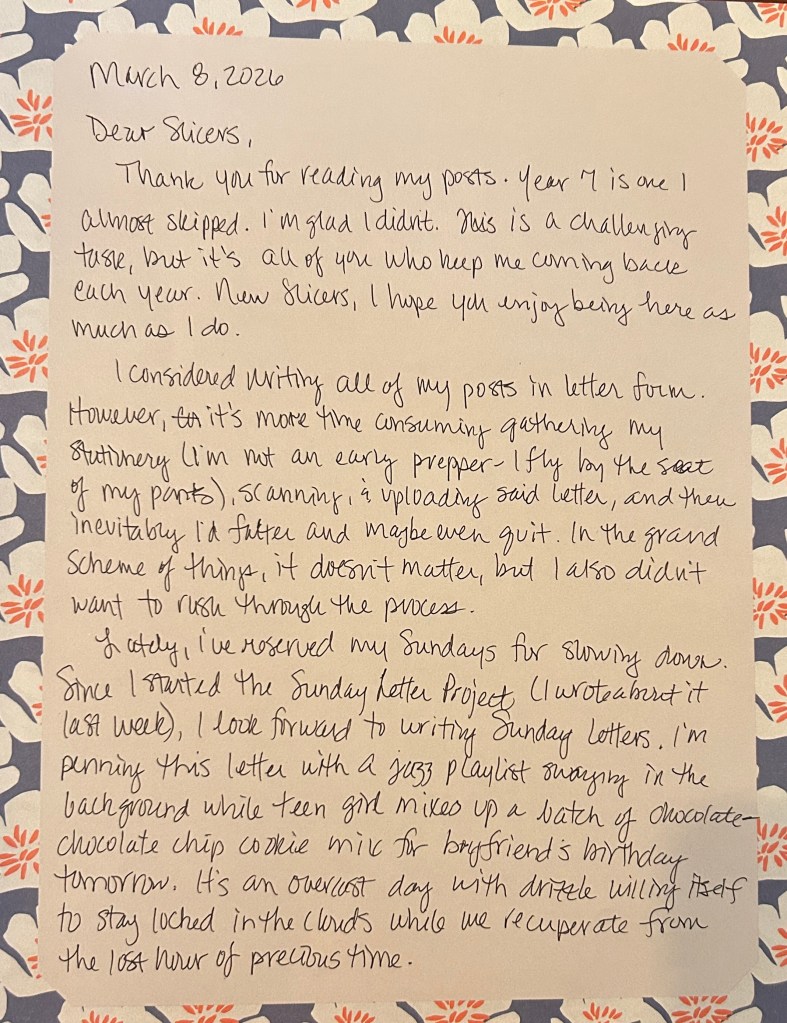 March 8, 2026
Dear Slicers,
Thank you for reading my posts. Year 7 is one I
almost skipped. I'm glad I didn't. This is a challenging
task, but it's all of you who keep me coming back
each year. New Slicers, I hope you enjoy being here as
much as I do.
I considered writing all of my posts in letter form.
However, it's more time consuming gathering my
stationery (I'm not an early prepper - I fly by the seat
of my pants), scanning, & uploading said letter, and then
inevitably I'd falter and maybe even quit. In the grand
scheme of things, it doesn't matter, but I also didn't
want to rush through the process.
Lately, I've reserved my Sundays for slowing down.
Since I started the Sunday Letter Project (I wrote about it
last week), I look forward to writing Sunday Letters. I'm
penning this letter with a jazz playlist swaying in the
background while teen girl mixes up a batch of chocolate-
chocolate chip cookie mix for boyfriend's birthday
tomorrow. It's an overcast day with drizzle willing itself
to stay locked in the clouds while we recuperate from
the lost hour of precious time.